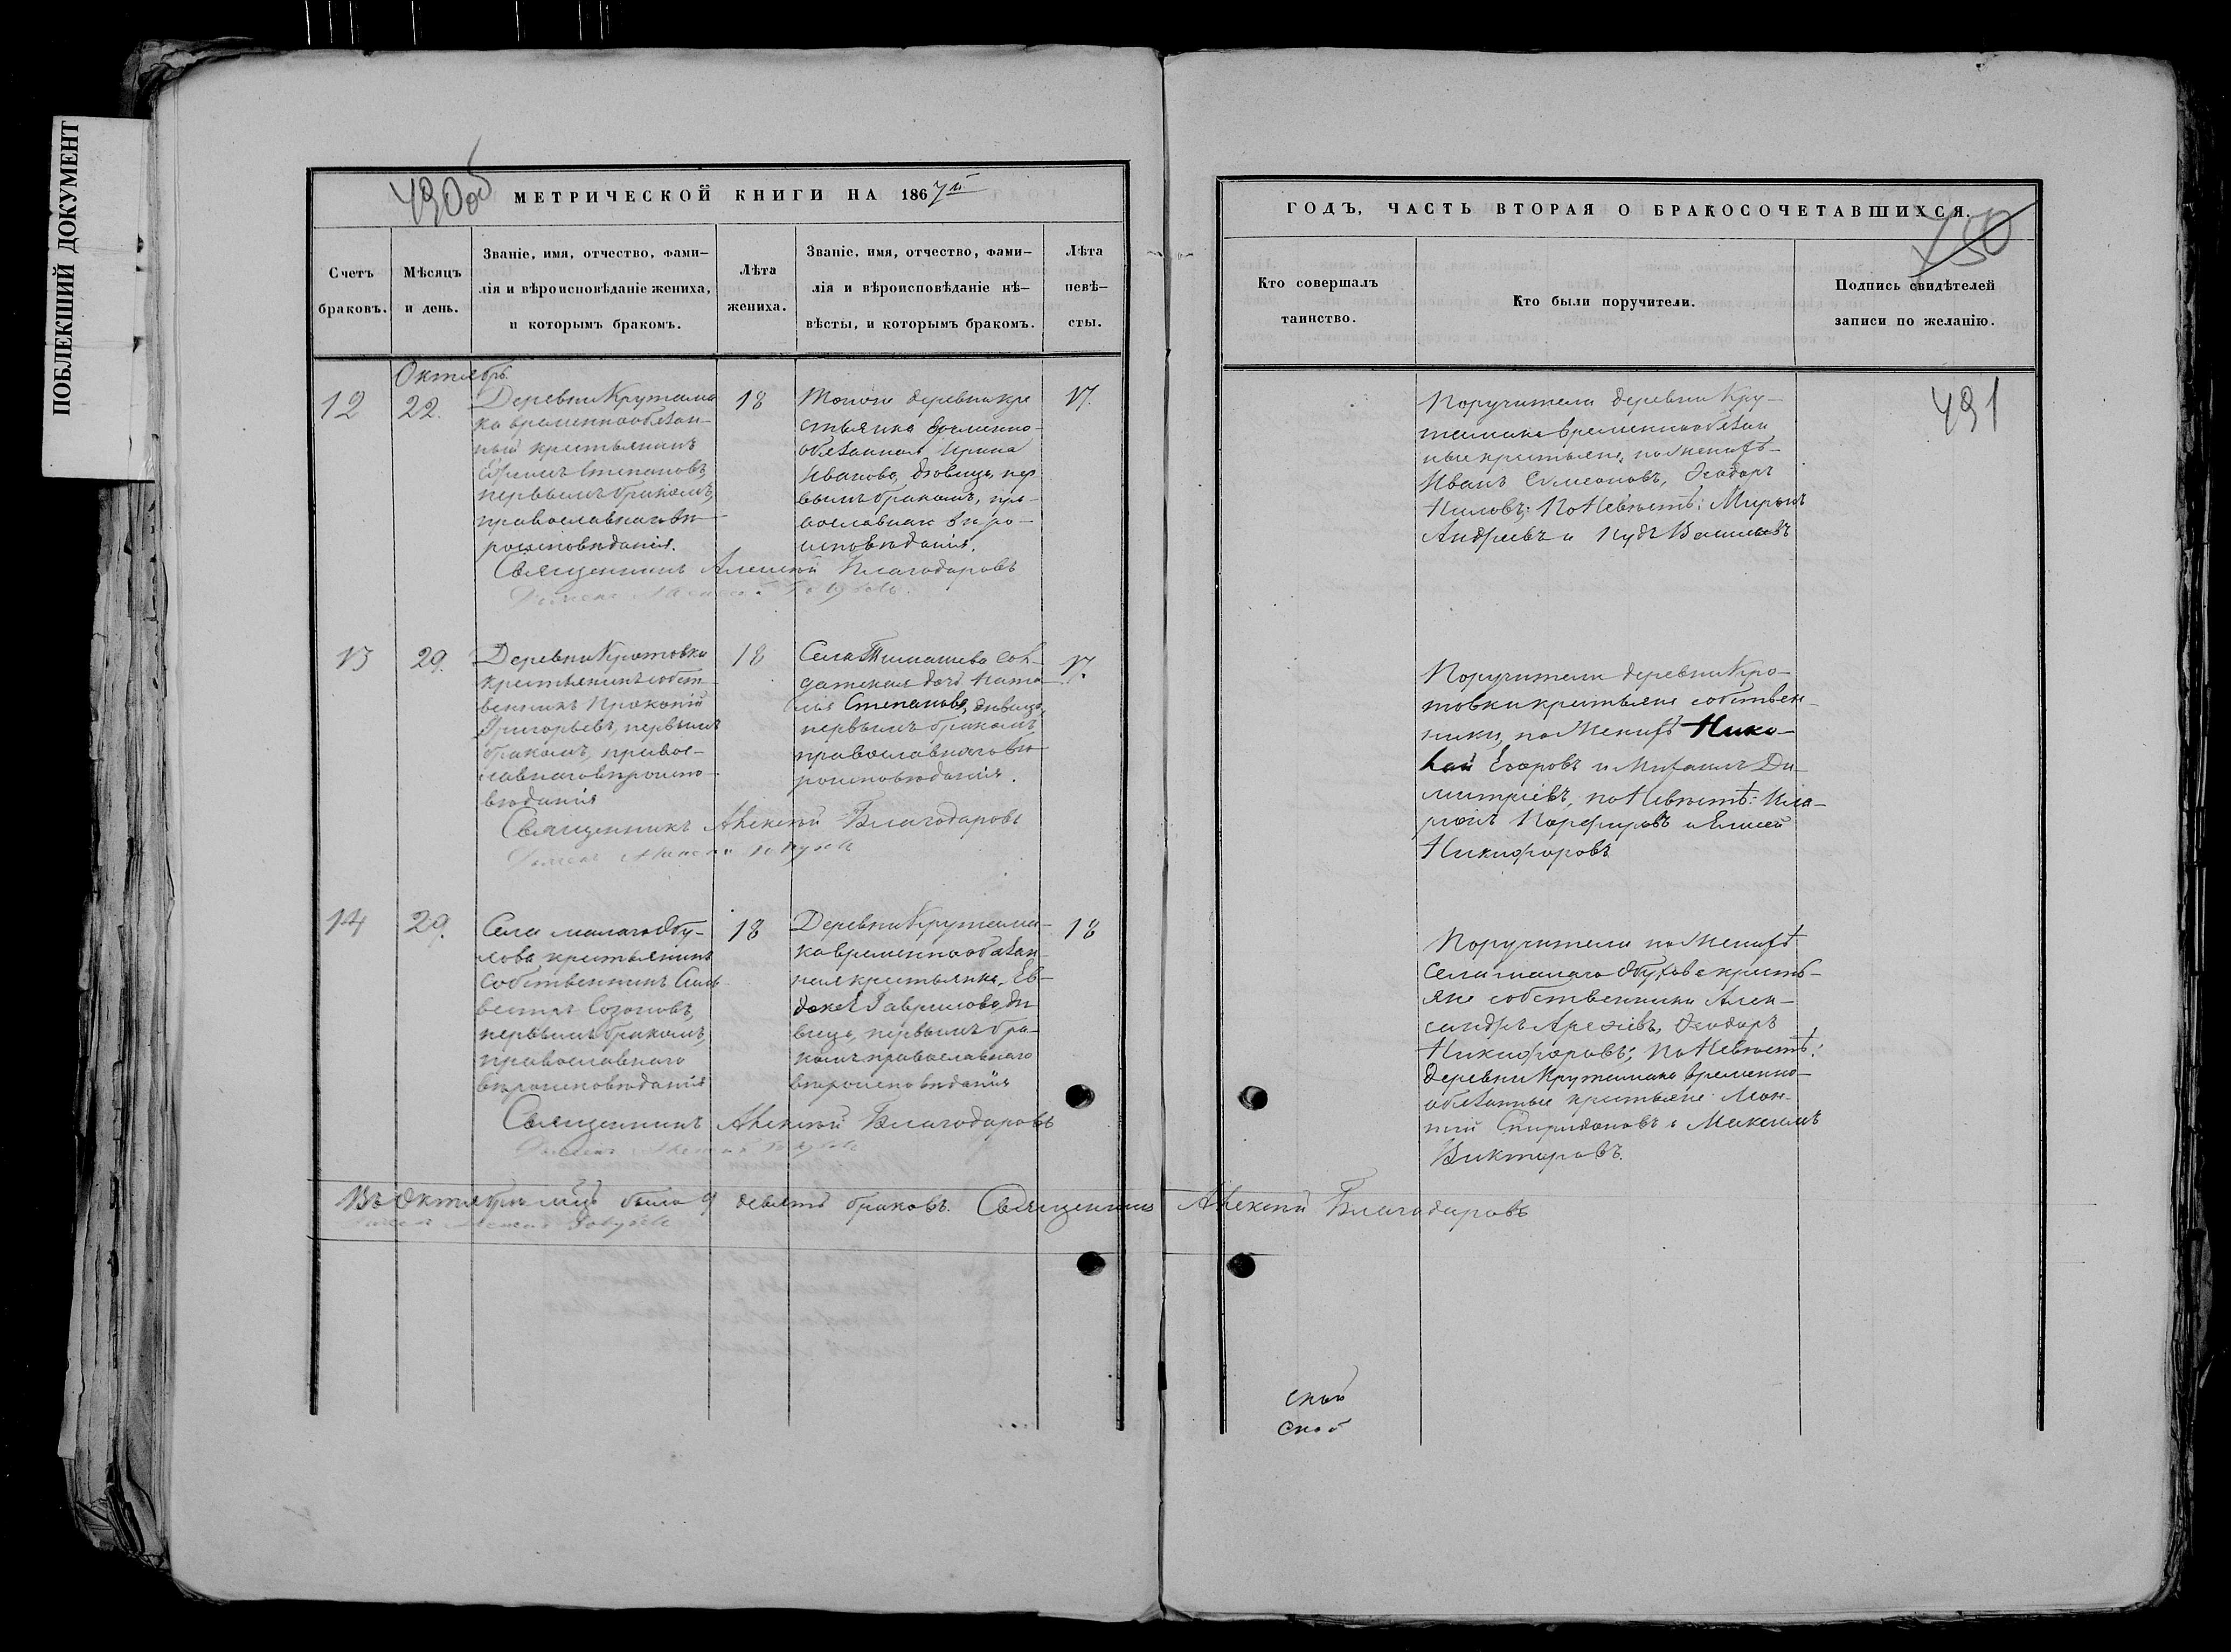 ПОБЛЕКШИЙ ДОКУМЕНТ
490об
МЕТРИЧЕСКОЙ КНИГИ НА 1867й
Счетъ браковъ.
Мѣсяцъ и день.
Званіе, имя, отчество, фами-
лія и вѣроисповѣданіе жениха,
и которымъ бракомъ.
Лѣта жениха.
Званіе, имя, отчество, фами-
лія и вѣроисповѣданіе не-
вѣсты, и которымъ бракомъ.
Лѣта невѣ-
сты.
Октябрь.
12
22.
Деревни
ка временнообязан-
ный крестьянинъ
Ефремъ Степановъ,
первымъ бракомъ,
православнаго вѣ-
роисповѣданія.
18
Тойже деревни кре
стьянка временно-
обязанная Ирина
Иванова, дѣвица, пер
вымъ бракомъ, пра-
вославнаго вѣро-
исповѣданія.
17.
Священникъ Алексѣй Благодаровъ
13
29.
Деревни Кротовки
крестьянинъ собст-
венникъ Прокопій
Григорьевъ, первымъ
бракомъ, правос-
лавнаго вѣроиспо-
вѣданія
18
Села Тимашева сол-
датская дочь Ната-
лія Степанова, дѣвица,
первымъ бракомъ
православнаго вѣ-
роисповѣданія.
17.
Священникъ Алексѣй Благодаровъ
14
29.
Села малаго
крестьянинъ
собственникъ Силь
вестръ Созоновъ,
первымъ бракомъ,
православнаго
вѣроисповѣданія
18
Деревни
ка временнообязан-
ная крестьянка, Ев-
докія Гаврилова, дѣ
вица, первымъ бра-
комъ православнаго
вѣроисповѣданія
18
Священникъ Алексѣй Благодаровъ
Въ Октябрѣ мцѣ было 9 девять браковъ. Священникъ Алексѣй Благодаровъ
ГОДЪ, ЧАСТЬ ВТОРАЯ О БРАКОСОЧЕТАВШИХСЯ.
Кто совершалъ
таинство.
Кто были поручители.
Подпись свидѣтелей
записи по желанію.
491
Поручители деревни
временнообязан
ные крестьяне, по женихѣ
Иванъ Симеоновъ, Ѳеодоръ
Ниловъ; По невѣстѣ: Миронъ
Андреевъ и Василіевъ
Поручители деревни Кро-
товки крестьяне собствен-
ники, по Женихѣ Нико-
лай Егоровъ и Михаилъ Ди-
митріевъ, по Невѣстѣ: Ила-
ріонъ Порфировъ и Елисей
Никифоровъ
Поручители по Женихѣ
села малаго кресть-
яне собственники Алек-
сандръ Ѳеодоръ
Никифоровъ; по Невѣстѣ:
деревни временно-
обязанные крестьяне
Спиридоновъ и Максимъ
Викторовъ.
ской
ской